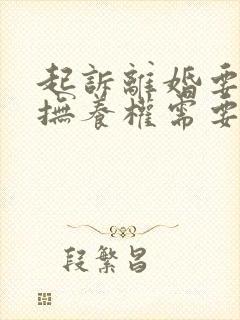 起訴離婚要
撫養權需要
段繁昌